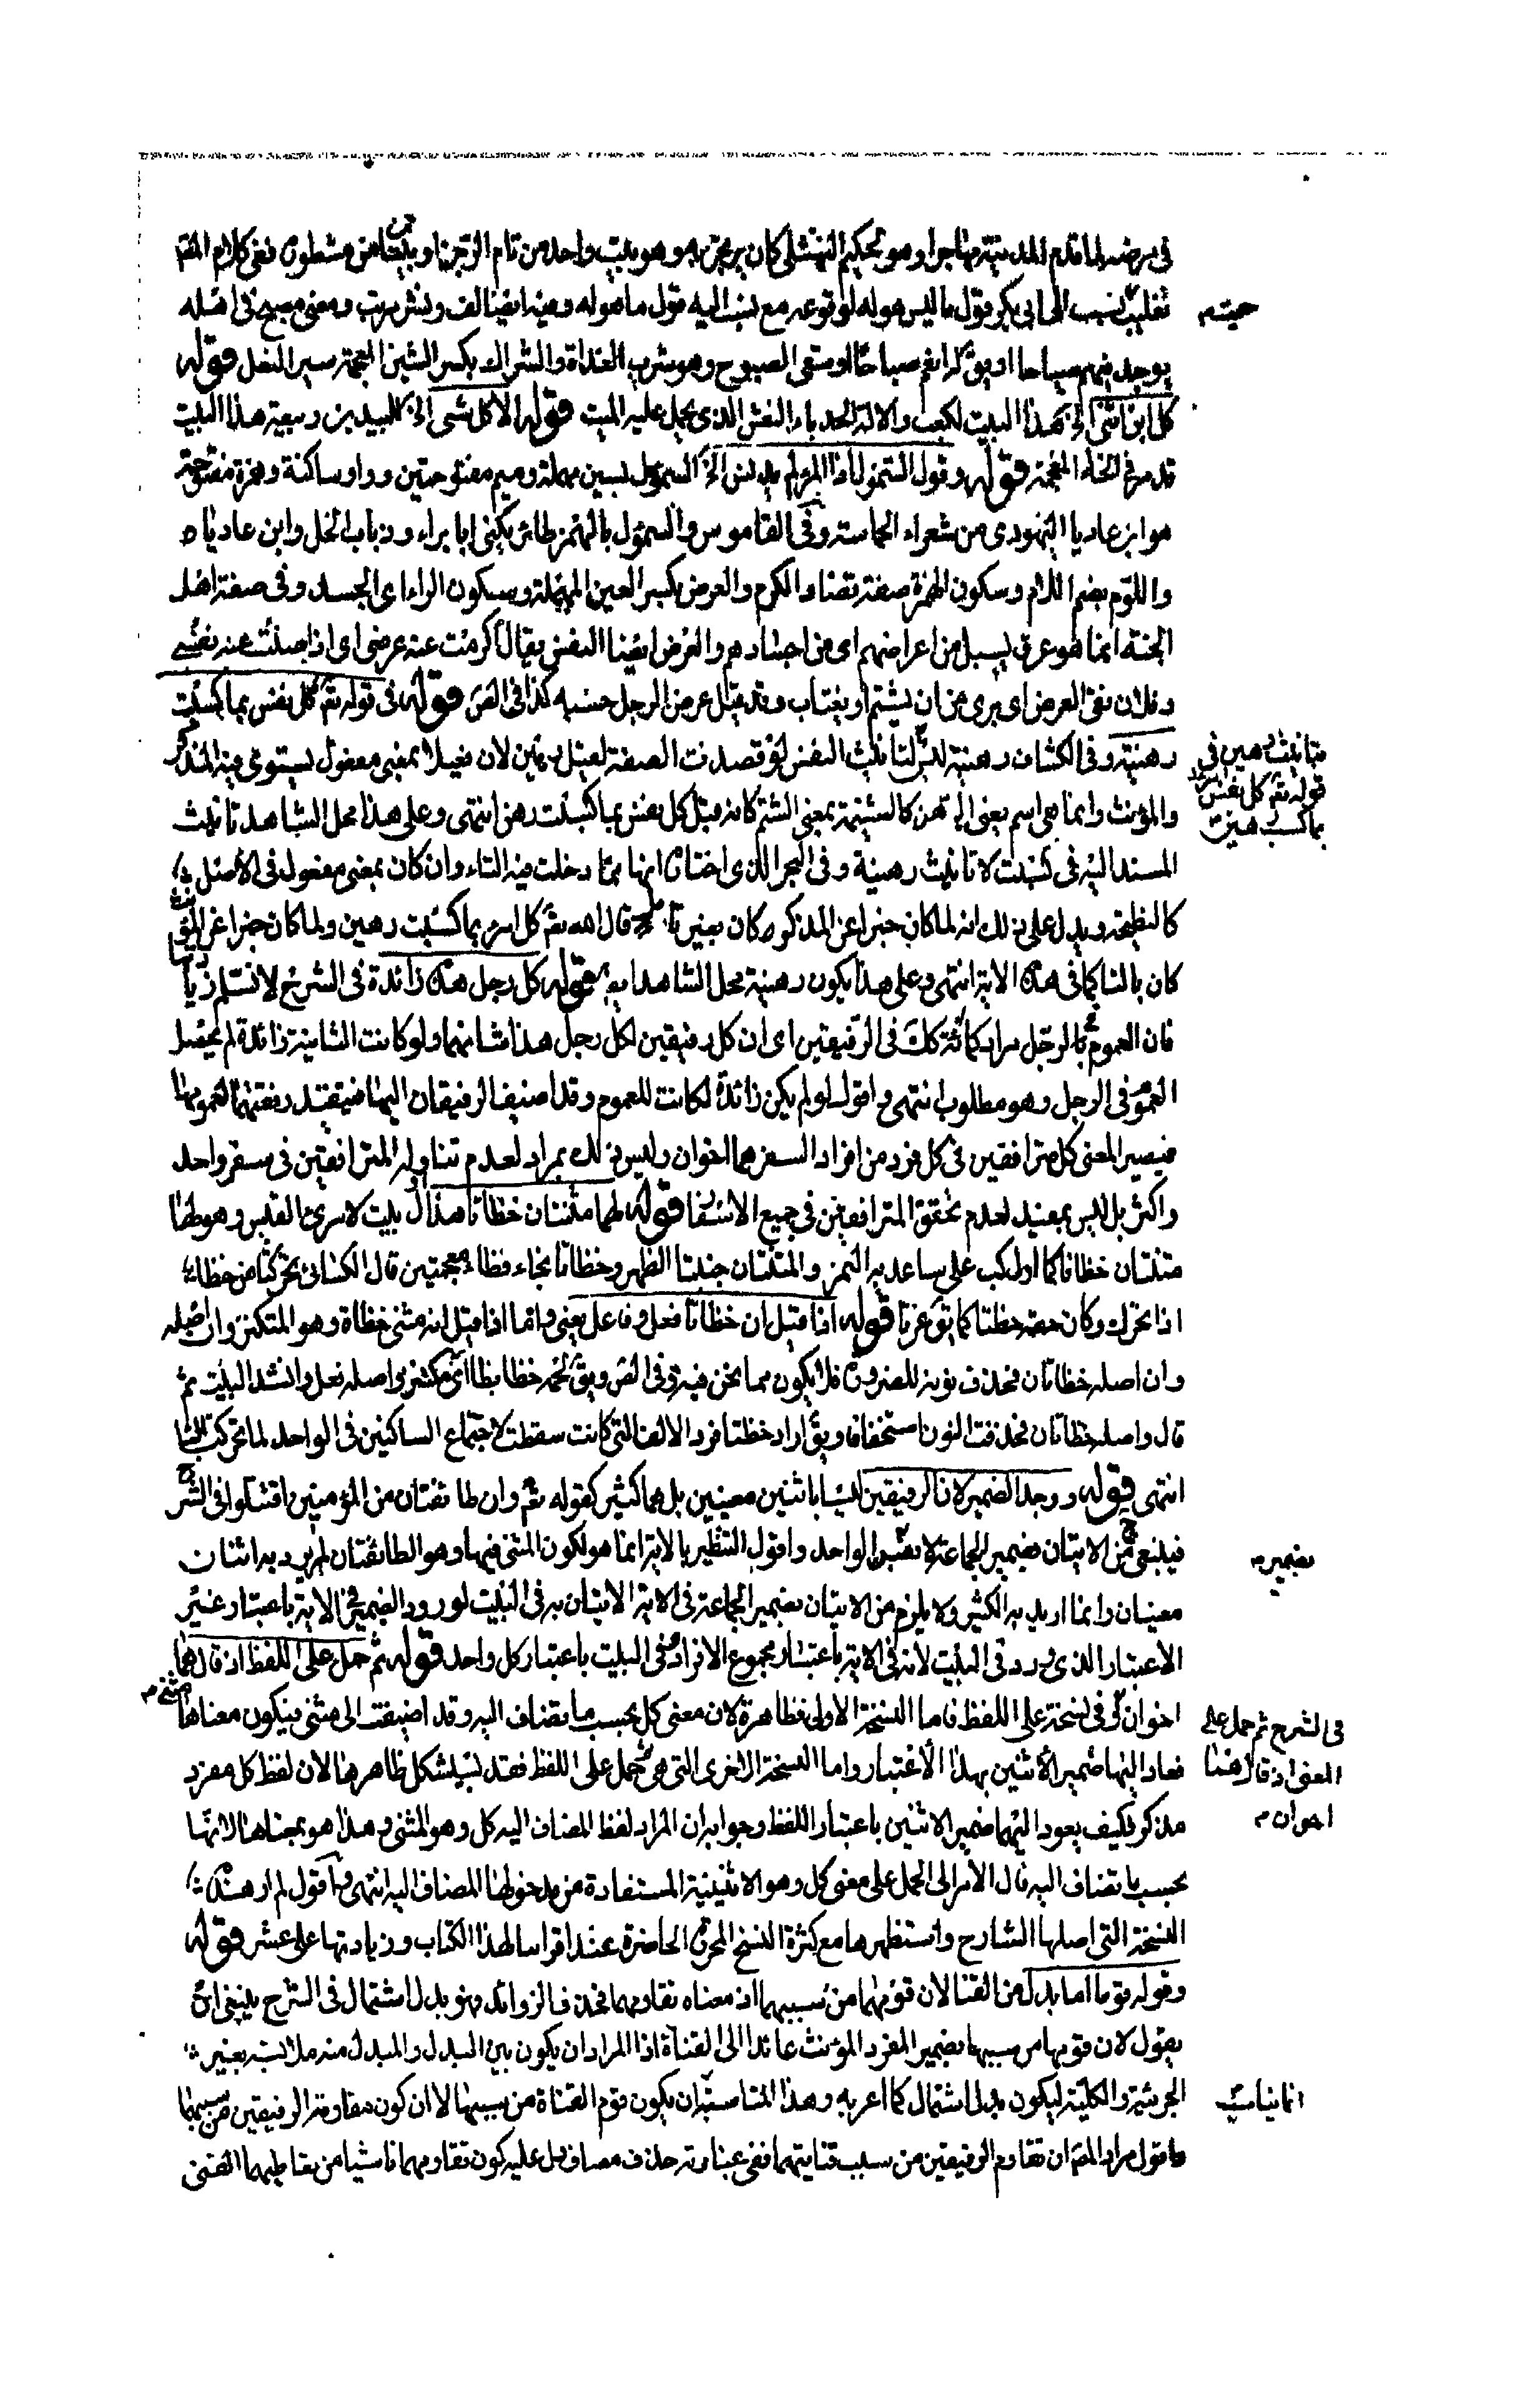 في مرضه لما قدم المدينة مهاجرا وهو لحكيم النهشلي كان يرتجز به وهو بيت واحد من تام الرجز او بيتان من مشطوره ففي كلام المص
تغليب نسب الى ابي بكر قول ما ليس هو له لوقوعه مع نسبته اليه قول ما هو له وفيه ايضا لف ونشر مرتب ومعنى مصبح في اهله
حيث
يوجد فيهم صباحا او يق له انعم صباحا او سقي الصبوح وهو شرب الغداة والشراك بكسر الشين المعجمة سير النعل قوله
كل ابن انثى الخ هذا البيت لكعب والالة الحدباء النعش الذي يحمل عليه الميت قوله الا كل شئ الخ للبيد بن ربيعة هذا البيت
قد مر في الخاء المعجمة قوله وقول السموءل اذا المرء لم يدنس الخ السموءل بسين مهملة وميم مفتوحتين وواو ساكنة وهمزة مفتوحة
هو ابن عاديا اليهودي من شعراء الحماسة وفي القاموس والسموءل بالهمز طائر يكنى ابا براء وذباب الخل وابن عادياء
واللؤم بضم اللام وسكون الهمزة صفة تضاد الكرم والعرض بكسر العين المهملة وسكون الراء اى الجسد وفي صفة اهل
الجنة انما هو عرق يسيل من اعراضهم اى من اجسادهم والعرض ايضا النفس يقال اكرمت عنه عرضى اى اذا صنت عنه نفسي
وفلان نقى العرض اى برئ من ان يشتم او يغتاب وقد قيل عرض الرجل حسبه كذا في الص قوله في قوله تعم كل نفس بما كسبت
رهينة وفي الكشاف رهينة ليس لتانيث النفس لو قصدت الصفة لقيل رهين لان فعيلا بمعنى مفعول يستوى فيه المذكر
بتانيث رهين في قوله تعم كل نفس بما كسبت رهينة
والمؤنث وانما هي اسم بمعنى الرهن كالشتيمة بمعنى الشتم كانه قيل كل نفس بما كسبت رهن انتهى وعلى هذا محل الشاهد تانيث
المسند اليه في كسبت لا تانيث رهينة وفي البحر الذي اختاره انها مما دخلت فيه التاء وان كان بمعنى مفعول في الاصل
كالنطيحة ويدل على ذلك انه لما كان خبرا عن المذكر كان بغير تاء قال الله تعم كل امرئ بما كسب رهين ولما كان خبرا عن المؤنث
كان بالتاء كما في هذه الاية انتهى وعلى هذا يكون رهينة محل الشاهد ايضا قوله كل رجل هذه زائدة في الشرح لا نسلم زيادتها
فان العموم في الرجل مراد كما ثمة كك في الرفيقين اى ان كل رفيقين لكل رجل هذا شانهما ولو كانت الثانية زائدة لم يحصل
العموم في الرجل وهو مطلوب انتهى واقول لو لم يكن زائدة لكانت للعموم وقد اضيف الرفيقان اليها فيقتد رفقتهما لعمومها
فيصير المعنى كل مترافقين في كل فرد من افراد السفر هما اخوان وليس ذلك بمراد لعدم تناوله المترافقين في سفر واحد
واكثر بل ليس بمفيد لعدم تحقق المترافقين في جميع الاسفار قوله لها متنتان خظاتا هذا اول بيت لامرئ القيس وهو لها
متنتان خظاتا كما اولكب على ساعديه النمر والمتنتان جنبتا الظهر وخظاتا بخاء فظاء معجمتين قال الكسائى
اذا تحرك وكان حقه خظتا كما يق غزتا قوله اذا قيل ان خظاتا فعل وفاعل يعنى واما اذا قيل انه مثنى خظاة وهو المتكنز وان اصله
وان اصله خظاتان فحذف نونه للضرورة فلا يكون مما نحن فيه وفي الص ويق لحمه خظا بظا اى مكتنز واصله فعل وانشد البيت ثم
قال واصله خظاتان فحذفت النون استخفافا ويق اراد خظتا فرد الالف التي كانت سقطت لاجتماع الساكنين في الواحد لما تحركت التاء
انتهى قوله ووجد الضمير لان الرفيقين ليسا باثنين معينين بل هما كثير كقوله تعم وان طائفتان من المؤمنين اقتتلوا في الشرح
فينبغى ح الاتيان بضمير الجماعة لا بضمير الواحد واقول التنظير بالاية انما هو لكون المثنى فيها وهو الطائفتان لم يرد به اثنان
بضمير
معينان وانما اريد به الكثير ولا يلزم من الاتيان بضمير الجماعة في الاية الاتيان به في البيت لورود الضمير في الاية باعتبار غير
الاعتبار الذي ورد في البيت لانه في الاية باعتبار مجموع الافراد وفي البيت باعتبار كل واحد قوله ثم حمل على اللفظ اذ قال هما
اخوان وفي نسخة على اللفظ فاما النسخة الاولى فظاهرة لان معنى كل بحسب ما تضاف اليه وقد اضيفت الى مثنى فيكون معناها مثنى
في الشرح ثم حمل على المعنى اذ قال هما اخوان
فعاد اليها ضمير الاثنين بهذا الاعتبار واما النسخة الاخرى التي هي حمل على اللفظ فقد يستشكل ظاهرها لان لفظ كل مفرد
مذكر فكيف يعود اليهما ضمير الاثنين باعتبار اللفظ وجوابه ان المراد لفظ المضاف اليه كل وهو المثنى وهذا هو بمعناها لانها
بحسب ما تضاف اليه فال الامر الى الحمل على معنى كل وهو الاثنينية المستفادة من مدخولها المضاف اليه انتهى واقول لم ار هذه
النسخة التي اصلها الشارح واستظهرها مع كثرة النسخ المحررة الحاضرة عند اقرائنا لهذا الكتاب وزيادتها على عشر قوله
وقوله قوما اما بدل من القنا لان قومهما من سببهما اذ معناه تقاومهما فحذف الزوائد فهو بدل اشتمال في الشرح ينبغي ان
يقول لان قومها من سببها بضمير المفرد المؤنث عائدا الى القناة اذ المراد ان يكون بين البدل والمبدل منه ملابسة بغير
الجزئية والكلية ليكون بدل اشتمال كما اعربه وهذا انما يناسبه ان يكون قوم القناة من سببها لا ان كون مقاومة الرفيقين من سببهما
انما يناسبه
واقول مراد المص ان تقاوم الرفيقين من سبب قناتيهما ففي عبارته حذف مضاف دل عليه كون تقاومهما ناشيا من تعاطيهما القنى